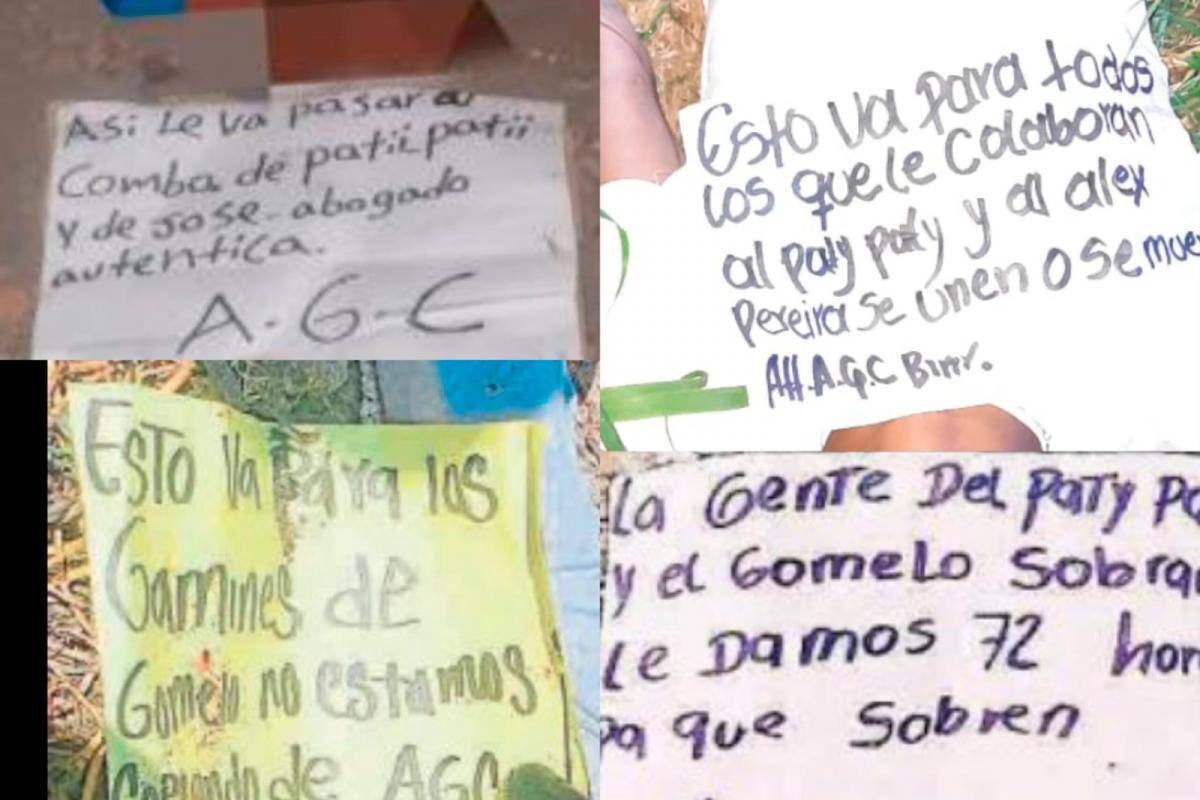 Asi Le va pasar a
Comba de patii patii
y de jose-abogado
autentica.
A-G-C
Esto Va para todos
Los que le Colaboran
al paty paty y al alex
pereira se unen o se mue
Att. A.G.C Birrr.
Esto Va Para los
Gamines de
Gomelo no estamos
de AGC
La Gente Del Paty Pa
y el Gomelo Sobra
Le Damos 72 hor
pa que Sobren